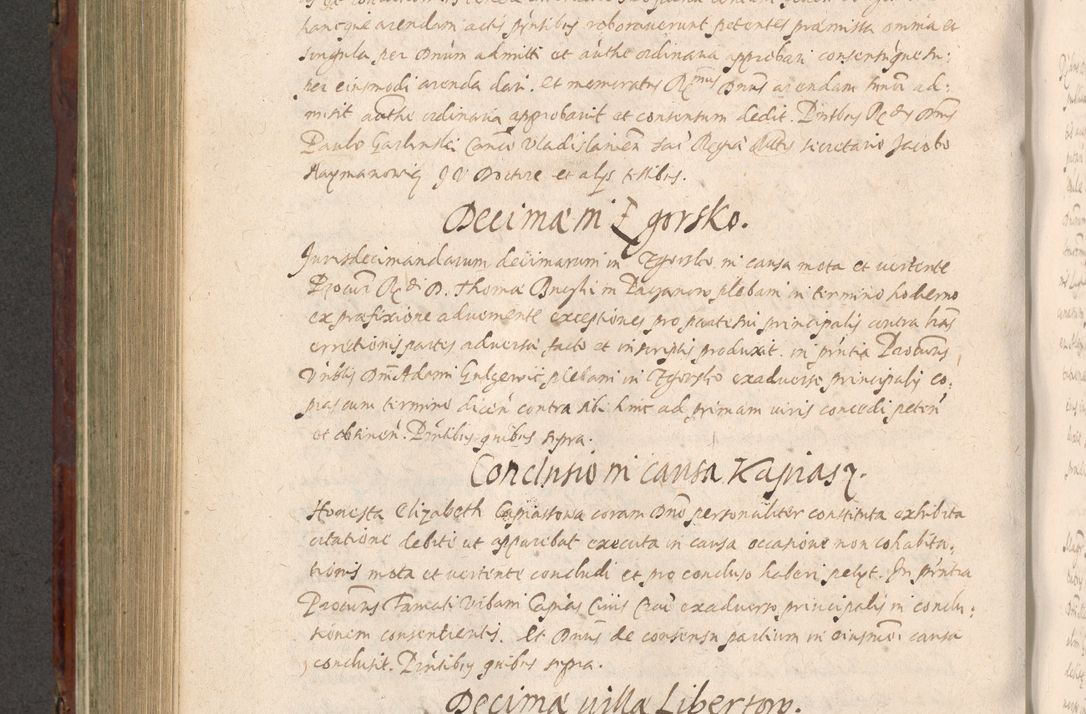 hancque arendam actis pntibus roboraverunt petentes praemissa omnia et
singula per Dnum admitti et authe ordinaria approbari consensumque su:
per eiusmodi arenda dari. Et memoratus Rmus Dnus arendam hmoi ad:
misit authe ordinaria approbavit et consensum dedit. Pntibus Rdis Dnis
Paulo Garlinski Canco Vladislavien Sac Regiae Mattis secretario Jacobo
Naymanowicz J V Doctore et alys testibus.
Decimae in Zgorsko.
In causa decimarum in Zgorsko in causa mota et vertente
Procur Rdi D. Thoma in Paczanow plebani in termino hodierno
ex praefixione adveniente exceptiones pro parte sui principalis contra has
partes adversae facto et in scriptis produxit. in pntia Procuris
Vnblis Dni Adami Gulczewic plebani in Zgorsko ex adverso principalis co:
pias cum termino dicen contra sibi hinc ad primam iuris concedi peten
et obtinen. Pntibus quibus supra.
Conclusio in causa Kapiasz.
Honesta Elizabeth Capiassowa coram Dno personaliter constituta exhibita
citatione debite ut apparebat executa in causa occasione non cohabita:
tionis mota et vertente concludi et pro concluso haberi petyt. In pntia
Procuris Famati Vrbani Capias Civis Crac ex adverso principalis in conclu:
sionem consentientis. Et Dnus de consensu partium in eiusmoi causa
conclusit. Pntibus quibus supra.
Decimae villa Libertow.